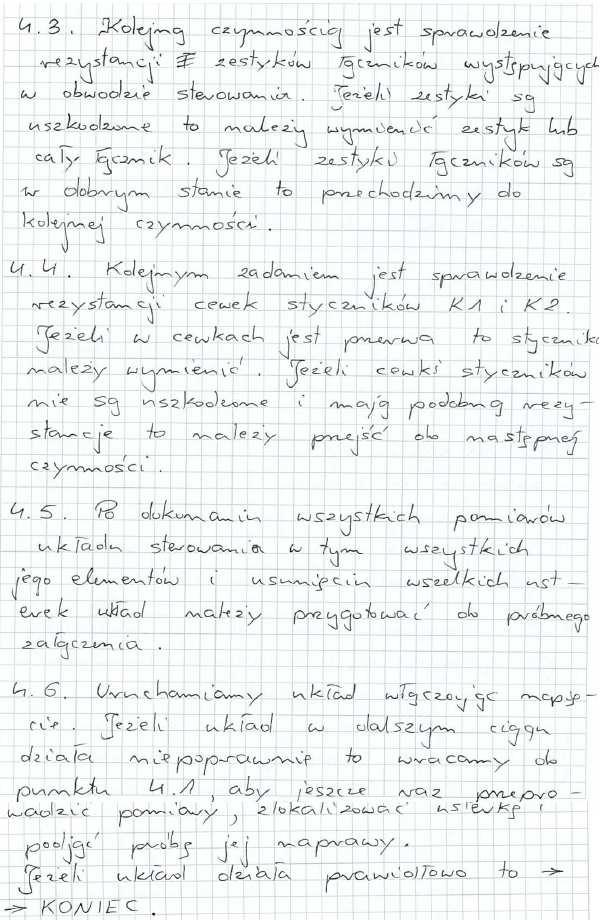 4.3. Kolejną czynnością jest sprawdzenie
rezystancji zestyków łączników występujących
w obwodzie sterowania. Jeżeli zestyki są
uszkodzone to należy wymienić zestyk lub
cały łącznik. Jeżeli zestyki łączników są
w dobrym stanie to przechodzimy do
kolejnej czynności.
4.4. Kolejnym zadaniem jest sprawdzenie
rezystancji cewek styczników K1 i K2.
Jeżeli w cewkach jest przerwa to stycznik
należy wymienić. Jeżeli cewki styczników
nie są uszkodzone i mają podobną rezy-
stancje to należy przejść do następnej
czynności.
4.5. Po dokonaniu wszystkich pomiarów
układu sterowania w tym wszystkich
jego elementów i usunięciu wszelkich ust-
erek układ należy przygotować do próbnego
załączenia.
4.6. Uruchamiamy układ włączając napię-
cie. Jeżeli układ w dalszym ciągu
działa niepoprawnie to wracamy do
punktu 4.1, aby jeszcze raz przepro-
wadzić pomiary, zlokalizować usterkę i
podjąć próbę jej naprawy.
Jeżeli układ działa prawidłowo to →
→ KONIEC.